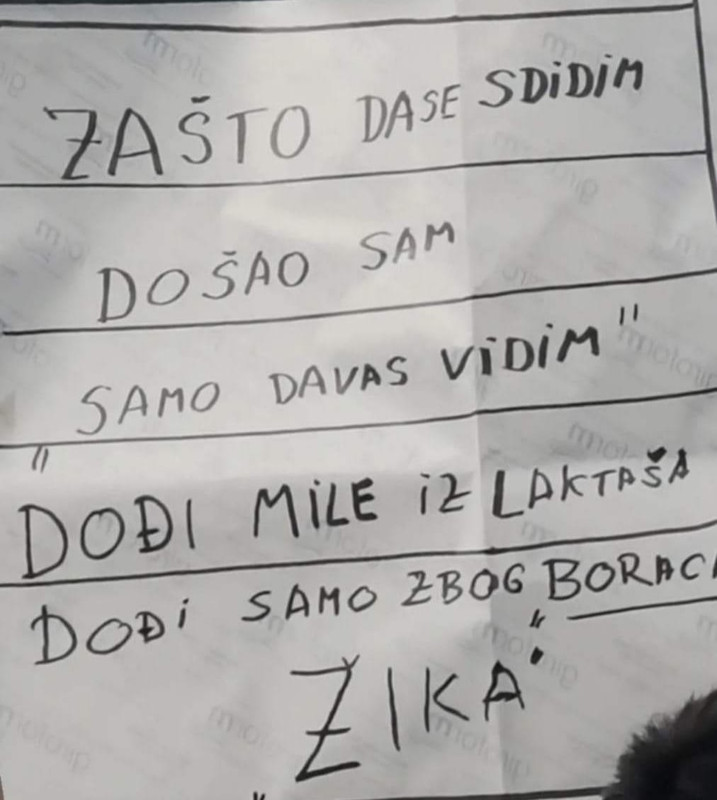 ZAŠTO DASE SDIDIM
DOŠAO SAM
SAMO DAVAS VIDIM"
"
DOĐI MILE IZ LAKTAŠA
DOĐI SAMO ZBOG BORACA
"ZIKA"